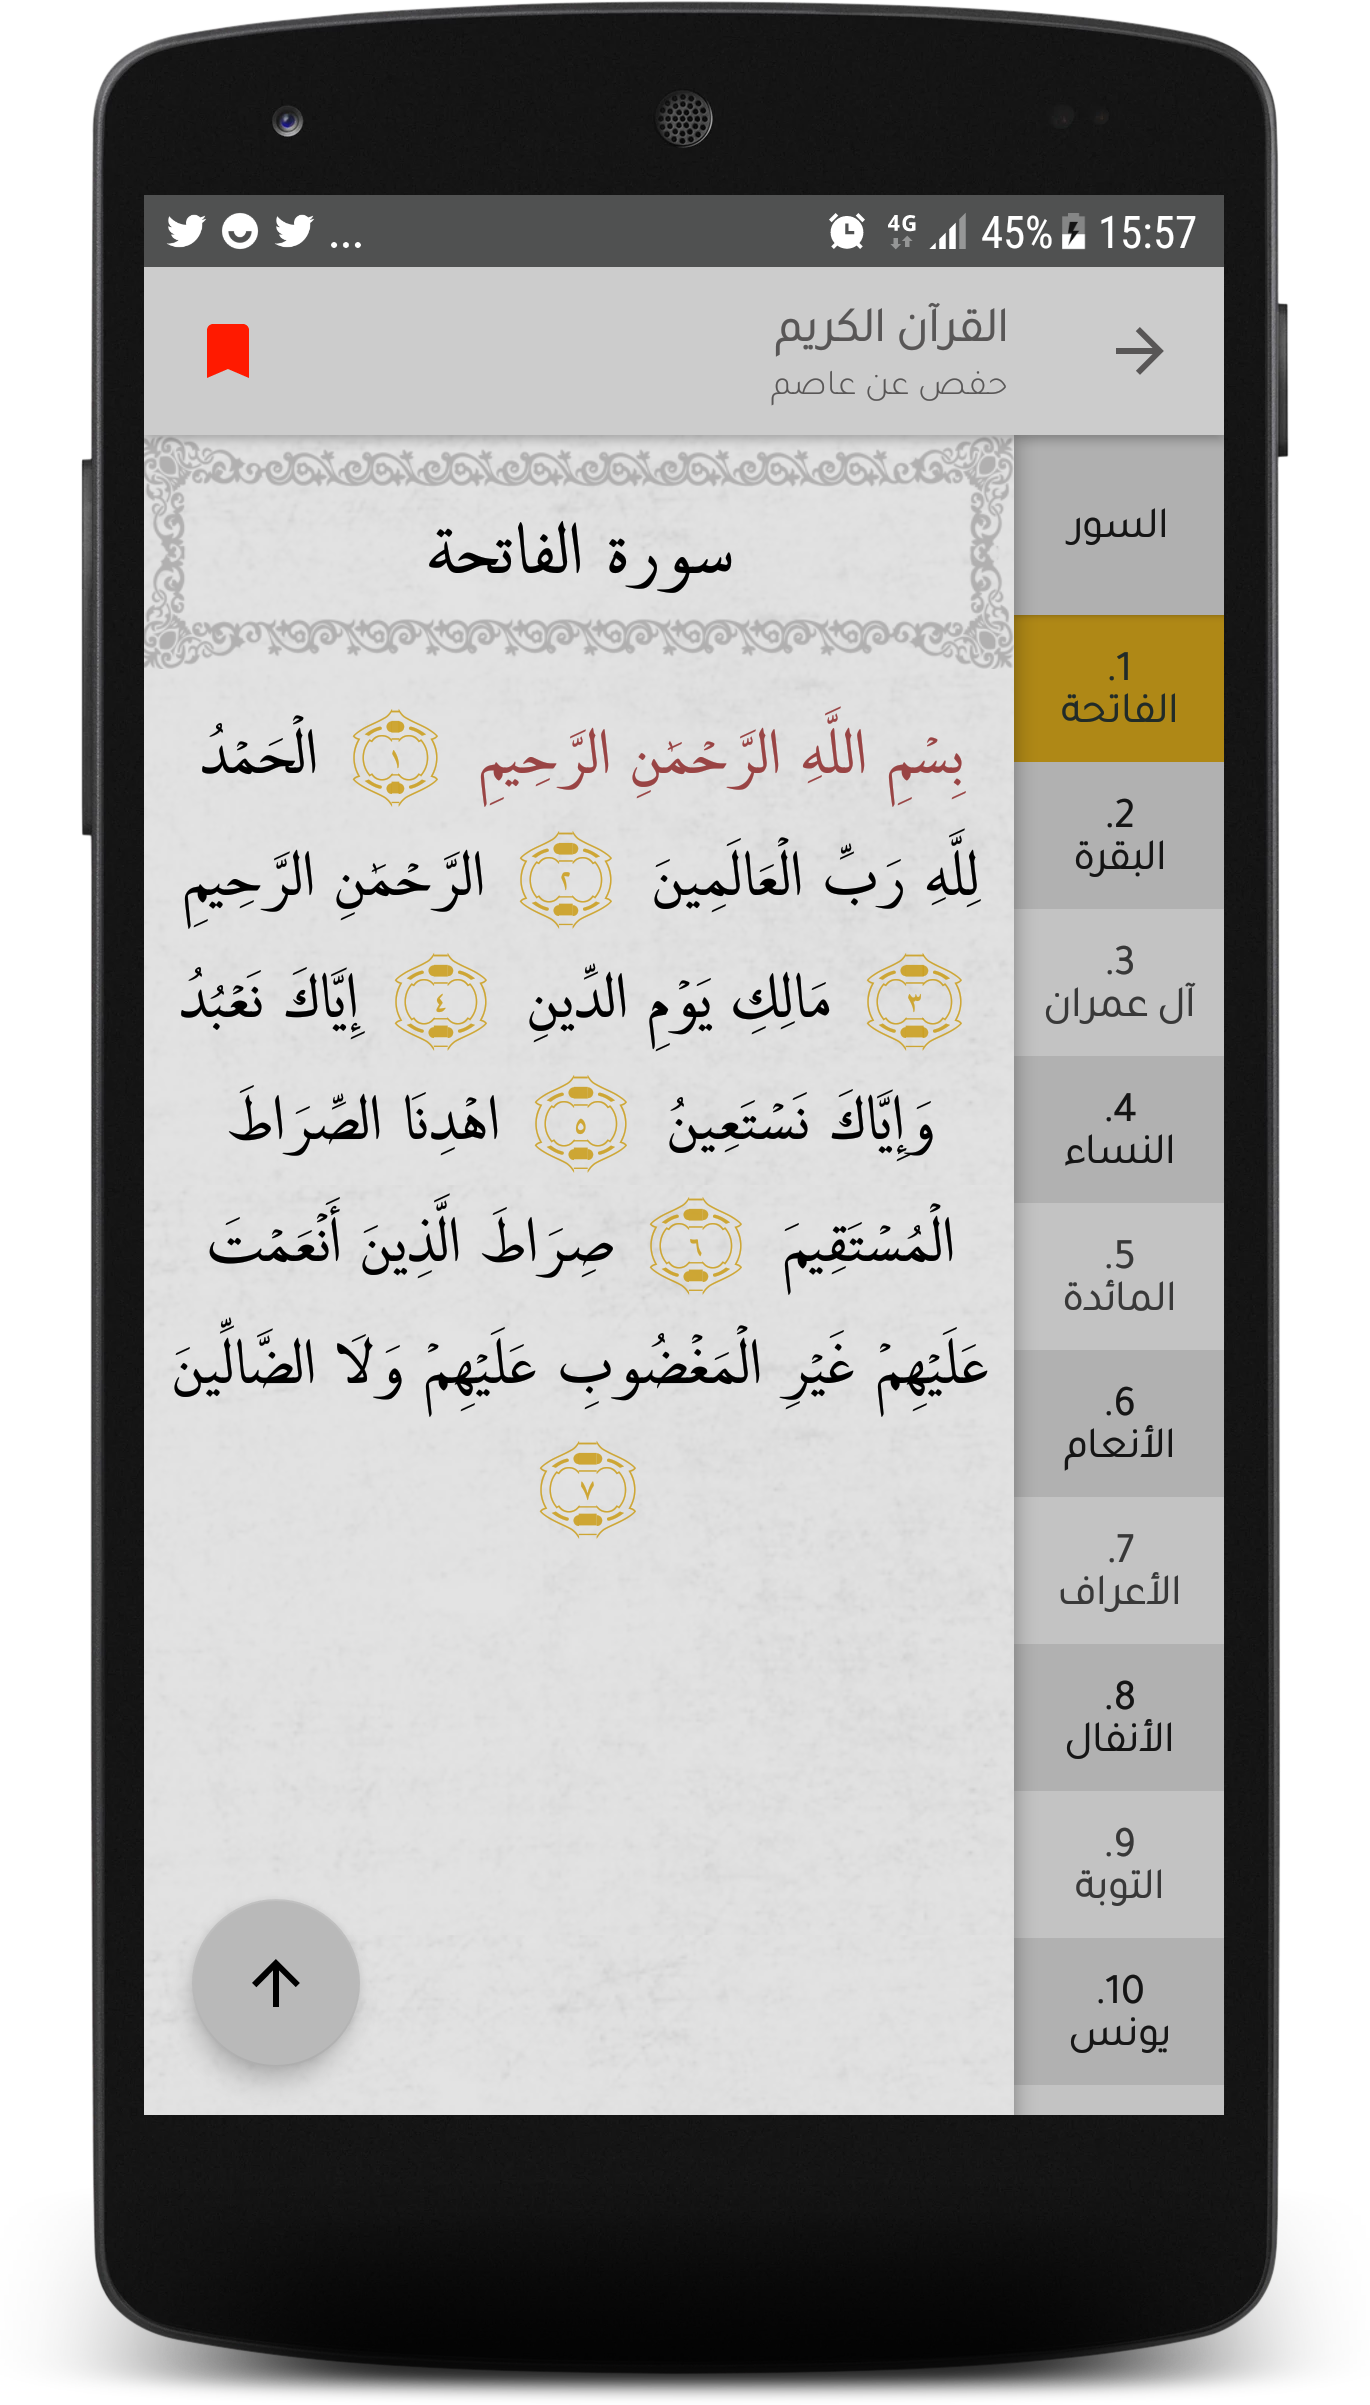 ... 4G 45% 15:57
القرآن الكريم
حفص عن عاصم
السور
1.
الفاتحة
2.
البقرة
3.
آل عمران
4.
النساء
5.
المائدة
6.
الأنعام
7.
الأعراف
8.
الأنفال
9.
التوبة
10.
يونس
سورة الفاتحة
بِسْمِ اللَّهِ الرَّحْمَٰنِ الرَّحِيمِ ١ الْحَمْدُ
لِلَّهِ رَبِّ الْعَالَمِينَ ٢ الرَّحْمَٰنِ الرَّحِيمِ
٣ مَالِكِ يَوْمِ الدِّينِ ٤ إِيَّاكَ نَعْبُدُ
وَإِيَّاكَ نَسْتَعِينُ ٥ اهْدِنَا الصِّرَاطَ
الْمُسْتَقِيمَ ٦ صِرَاطَ الَّذِينَ أَنْعَمْتَ
عَلَيْهِمْ غَيْرِ الْمَغْضُوبِ عَلَيْهِمْ وَلَا الضَّالِّينَ
٧